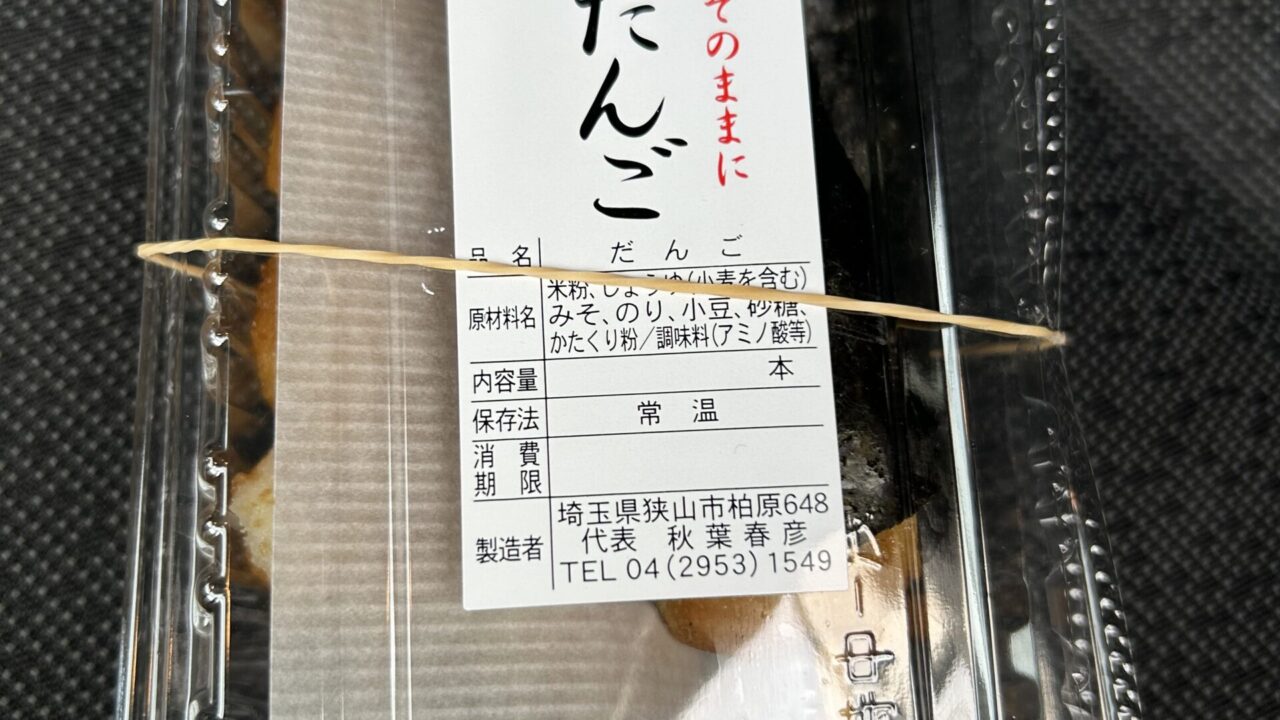 だんご
そのままに
品名 だんご
原材料名 米粉、しょうゆ(小麦を含む)
みそ、のり、小豆、砂糖、
かたくり粉／調味料(アミノ酸等)
内容量 本
保存法 常温
消費
期限
製造者 埼玉県狭山市柏原648
代表 秋葉春彦
TEL 04(2953)1549